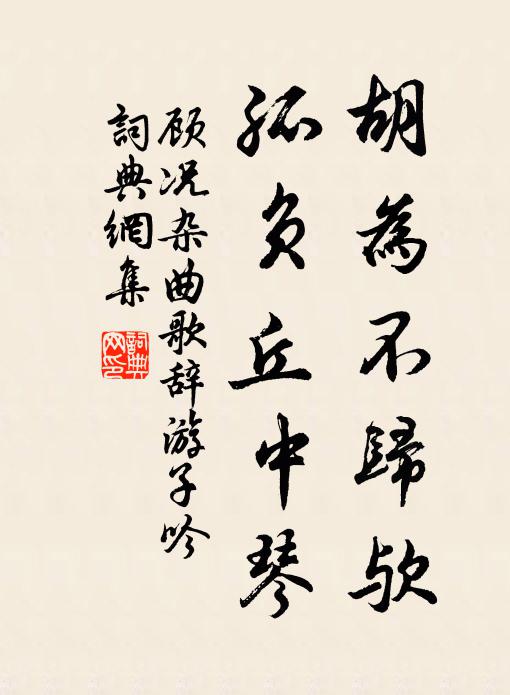 胡為不歸欤
孤负丘中琴
顾况杂曲歌辞游子吟
詞典網集
詞典网印